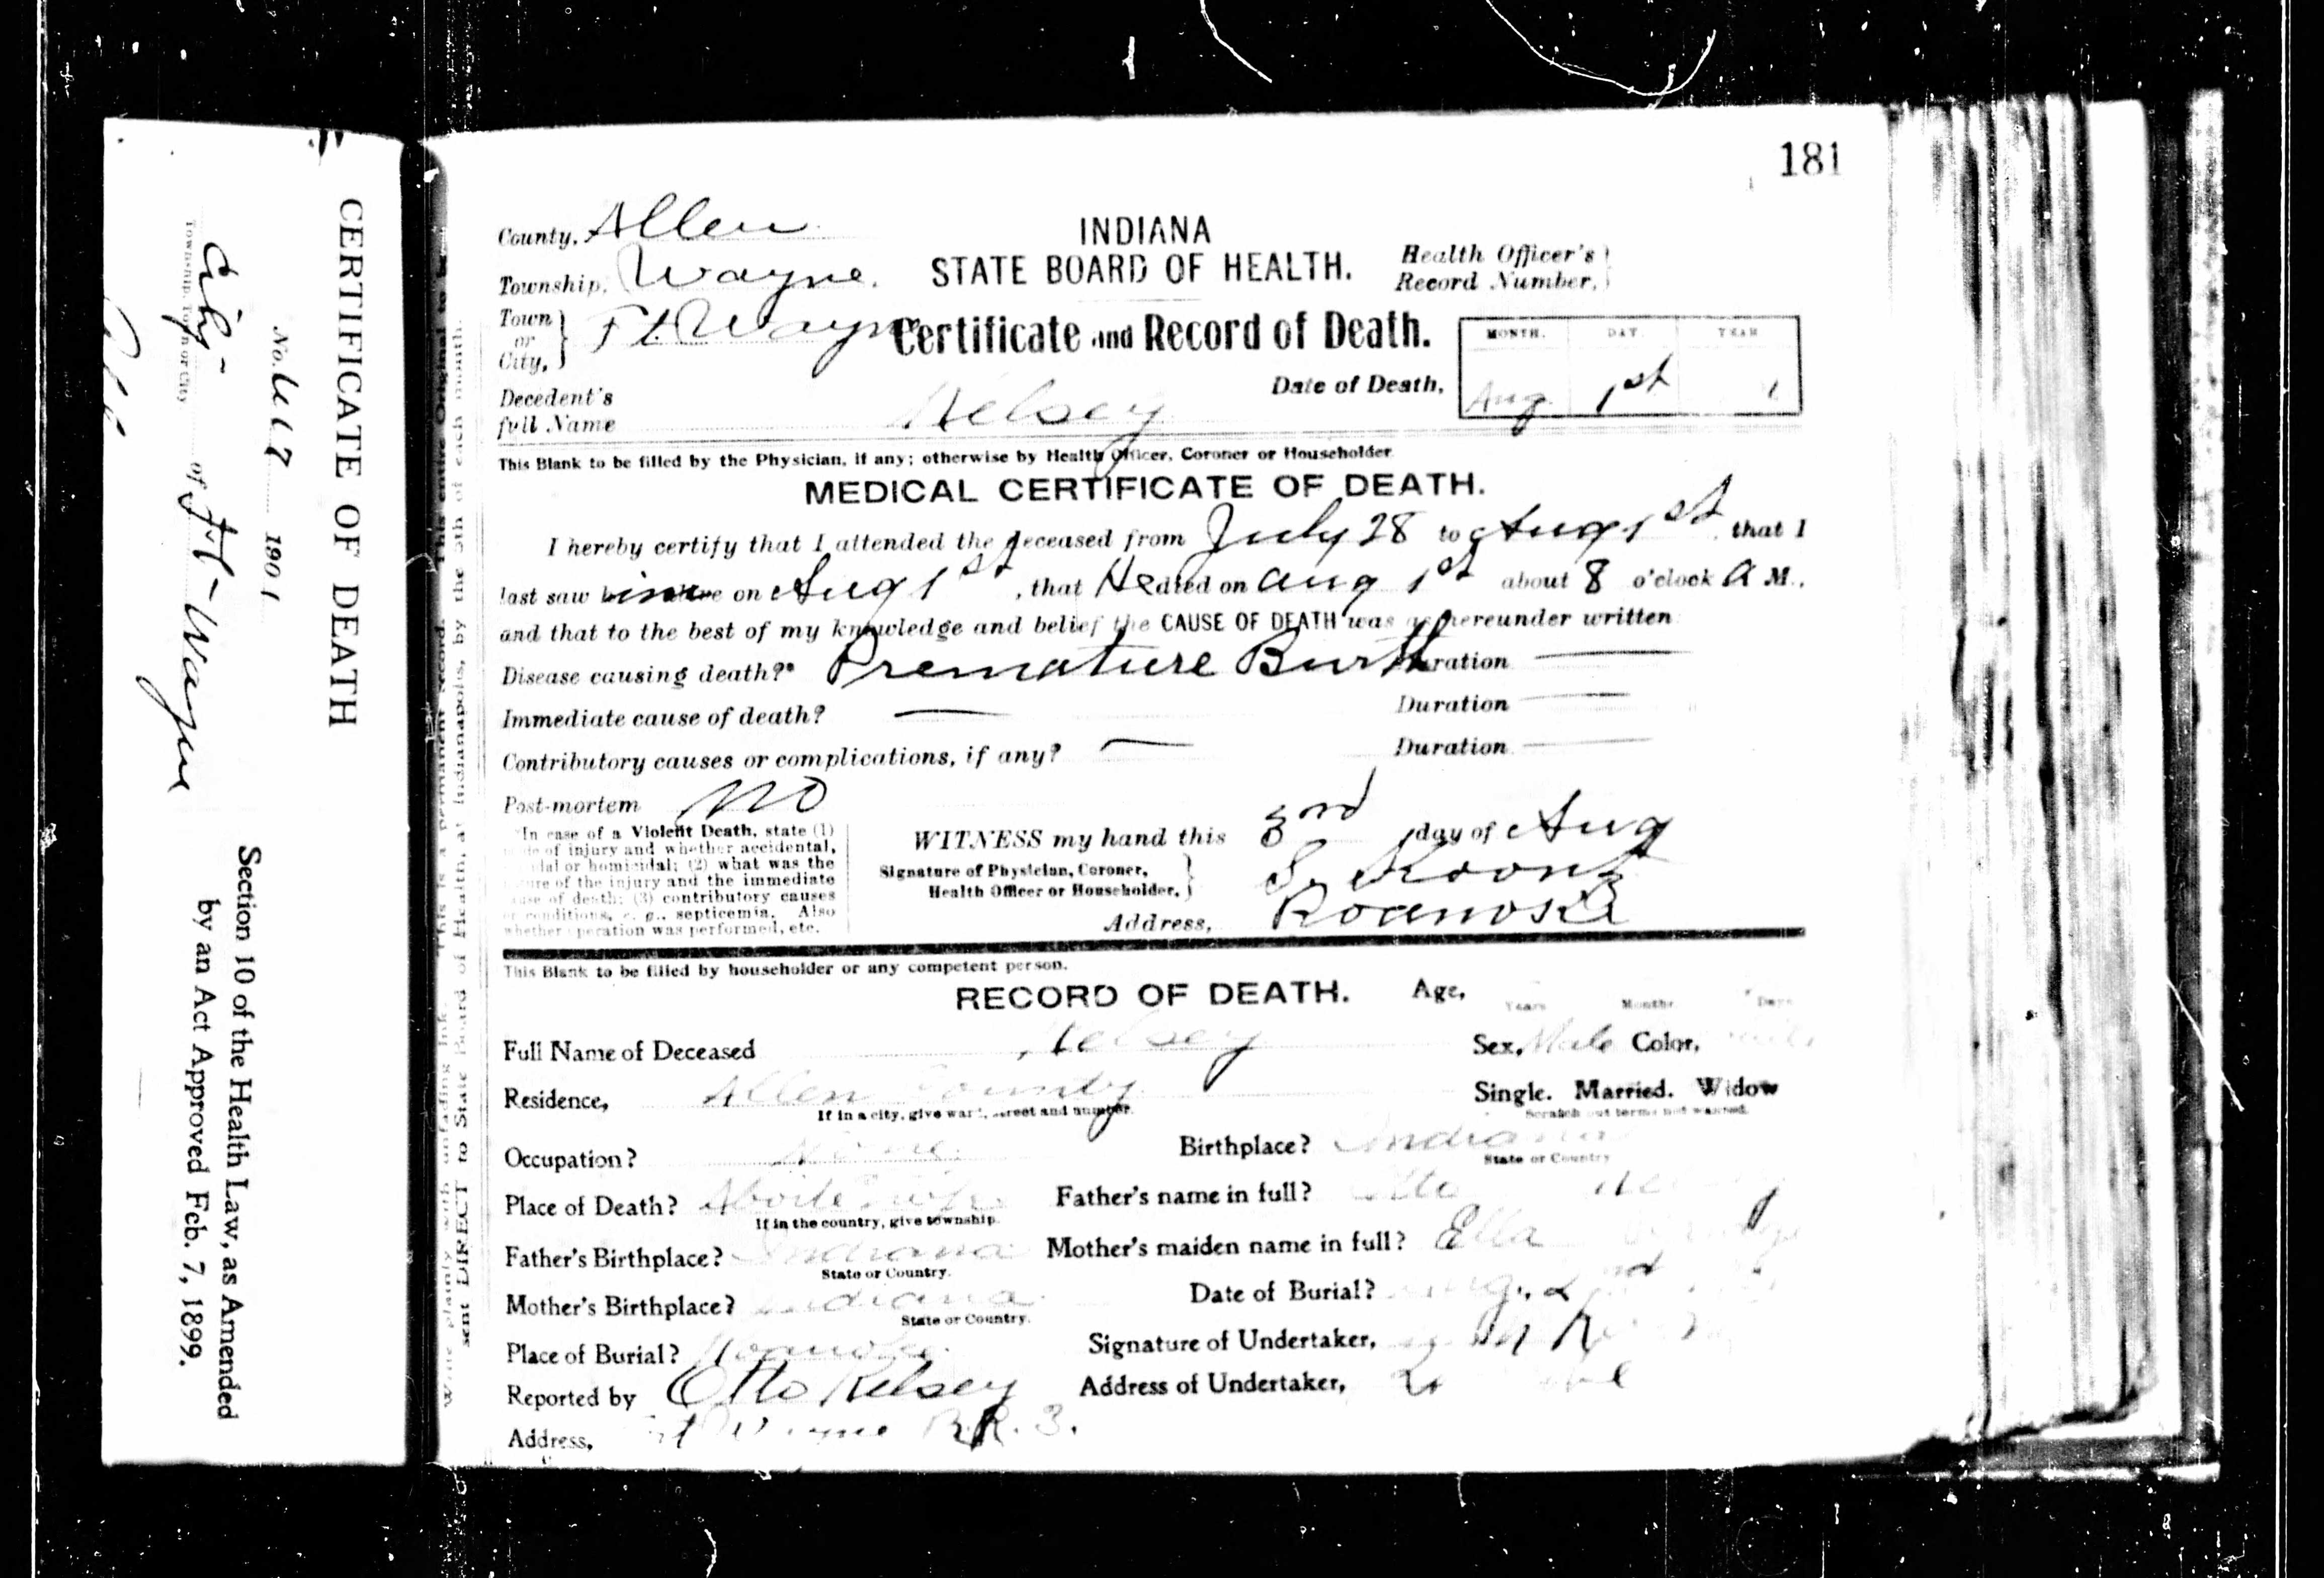 181
CERTIFICATE OF DEATH
No. 1901
City of Ft. Wayne
Township, Town or City
Section 10 of the Health Law, as Amended
by an Act Approved Feb. 7, 1899.
INDIANA
STATE BOARD OF HEALTH.
Certificate and Record of Death.
County, Allen
Township, Wayne.
Town or City, Ft Wayne
Health Officer's
Record Number,
MONTH. DAY. YEAR
Date of Death, Aug 1st 1
Decedent's
full Name Kelsey
This Blank to be filled by the Physician, if any; otherwise by Health Officer, Coroner or Householder.
MEDICAL CERTIFICATE OF DEATH.
I hereby certify that I attended the deceased from July 28 to Aug 1st, that I
last saw him alive on Aug 1st, that He died on Aug 1st about 8 o'clock A M.,
and that to the best of my knowledge and belief the CAUSE OF DEATH was as hereunder written
Disease causing death?* Premature Birth Duration
Immediate cause of death? — Duration —
Contributory causes or complications, if any? — Duration —
Post-mortem no
*In case of a Violent Death, state (1)
of injury and whether accidental,
or homicidal; (2) what was the
of the injury and the immediate
of death; (3) contributory causes
or conditions, e. g., septicemia. Also
whether operation was performed, etc.
WITNESS my hand this 3rd day of Aug
Signature of Physician, Coroner,
Health Officer or Householder, S. Koontz
Address, Roanoke
This Blank to be filled by householder or any competent person.
RECORD OF DEATH. Age,
Years Months Days
Full Name of Deceased Kelsey Sex, Male Color,
Residence, Allen County Single. Married. Widow
If in a city, give ward, street and number. Scratch out terms not wanted.
Occupation? None Birthplace? Indiana
State or Country
Place of Death? Aboite Father's name in full? Otto
If in the country, give township.
Father's Birthplace? Indiana Mother's maiden name in full? Ella
State or Country.
Mother's Birthplace? Indiana Date of Burial? Aug. 2nd
State or Country.
Place of Burial? Roanoke Signature of Undertaker,
Reported by Otto Kelsey Address of Undertaker,
Address, Ft Wayne R.R. 3.